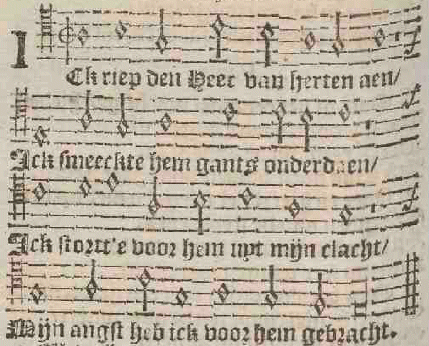 Ick riep den Heer van herten aen/
Ick smeeckte hem gants onderdaen/
Ick stortt'e voor hem uyt mijn clacht/
Mijn angst heb ick voor hem gebracht.